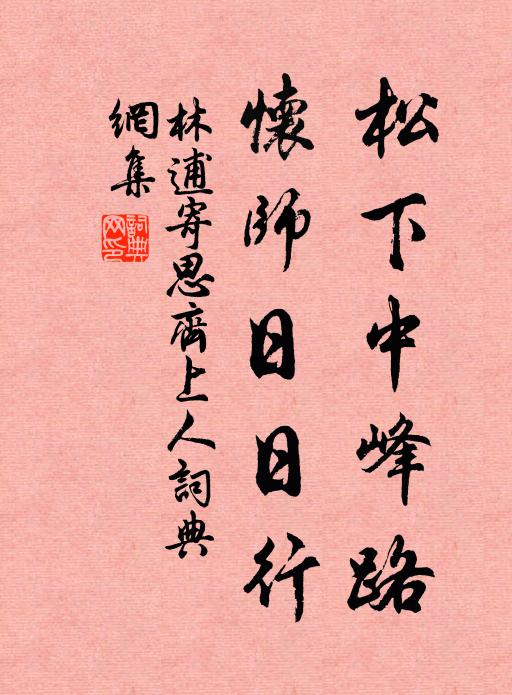 松下中峰路
懷師日日行
林逋寄思齊上人詞典
網集
詞典網印